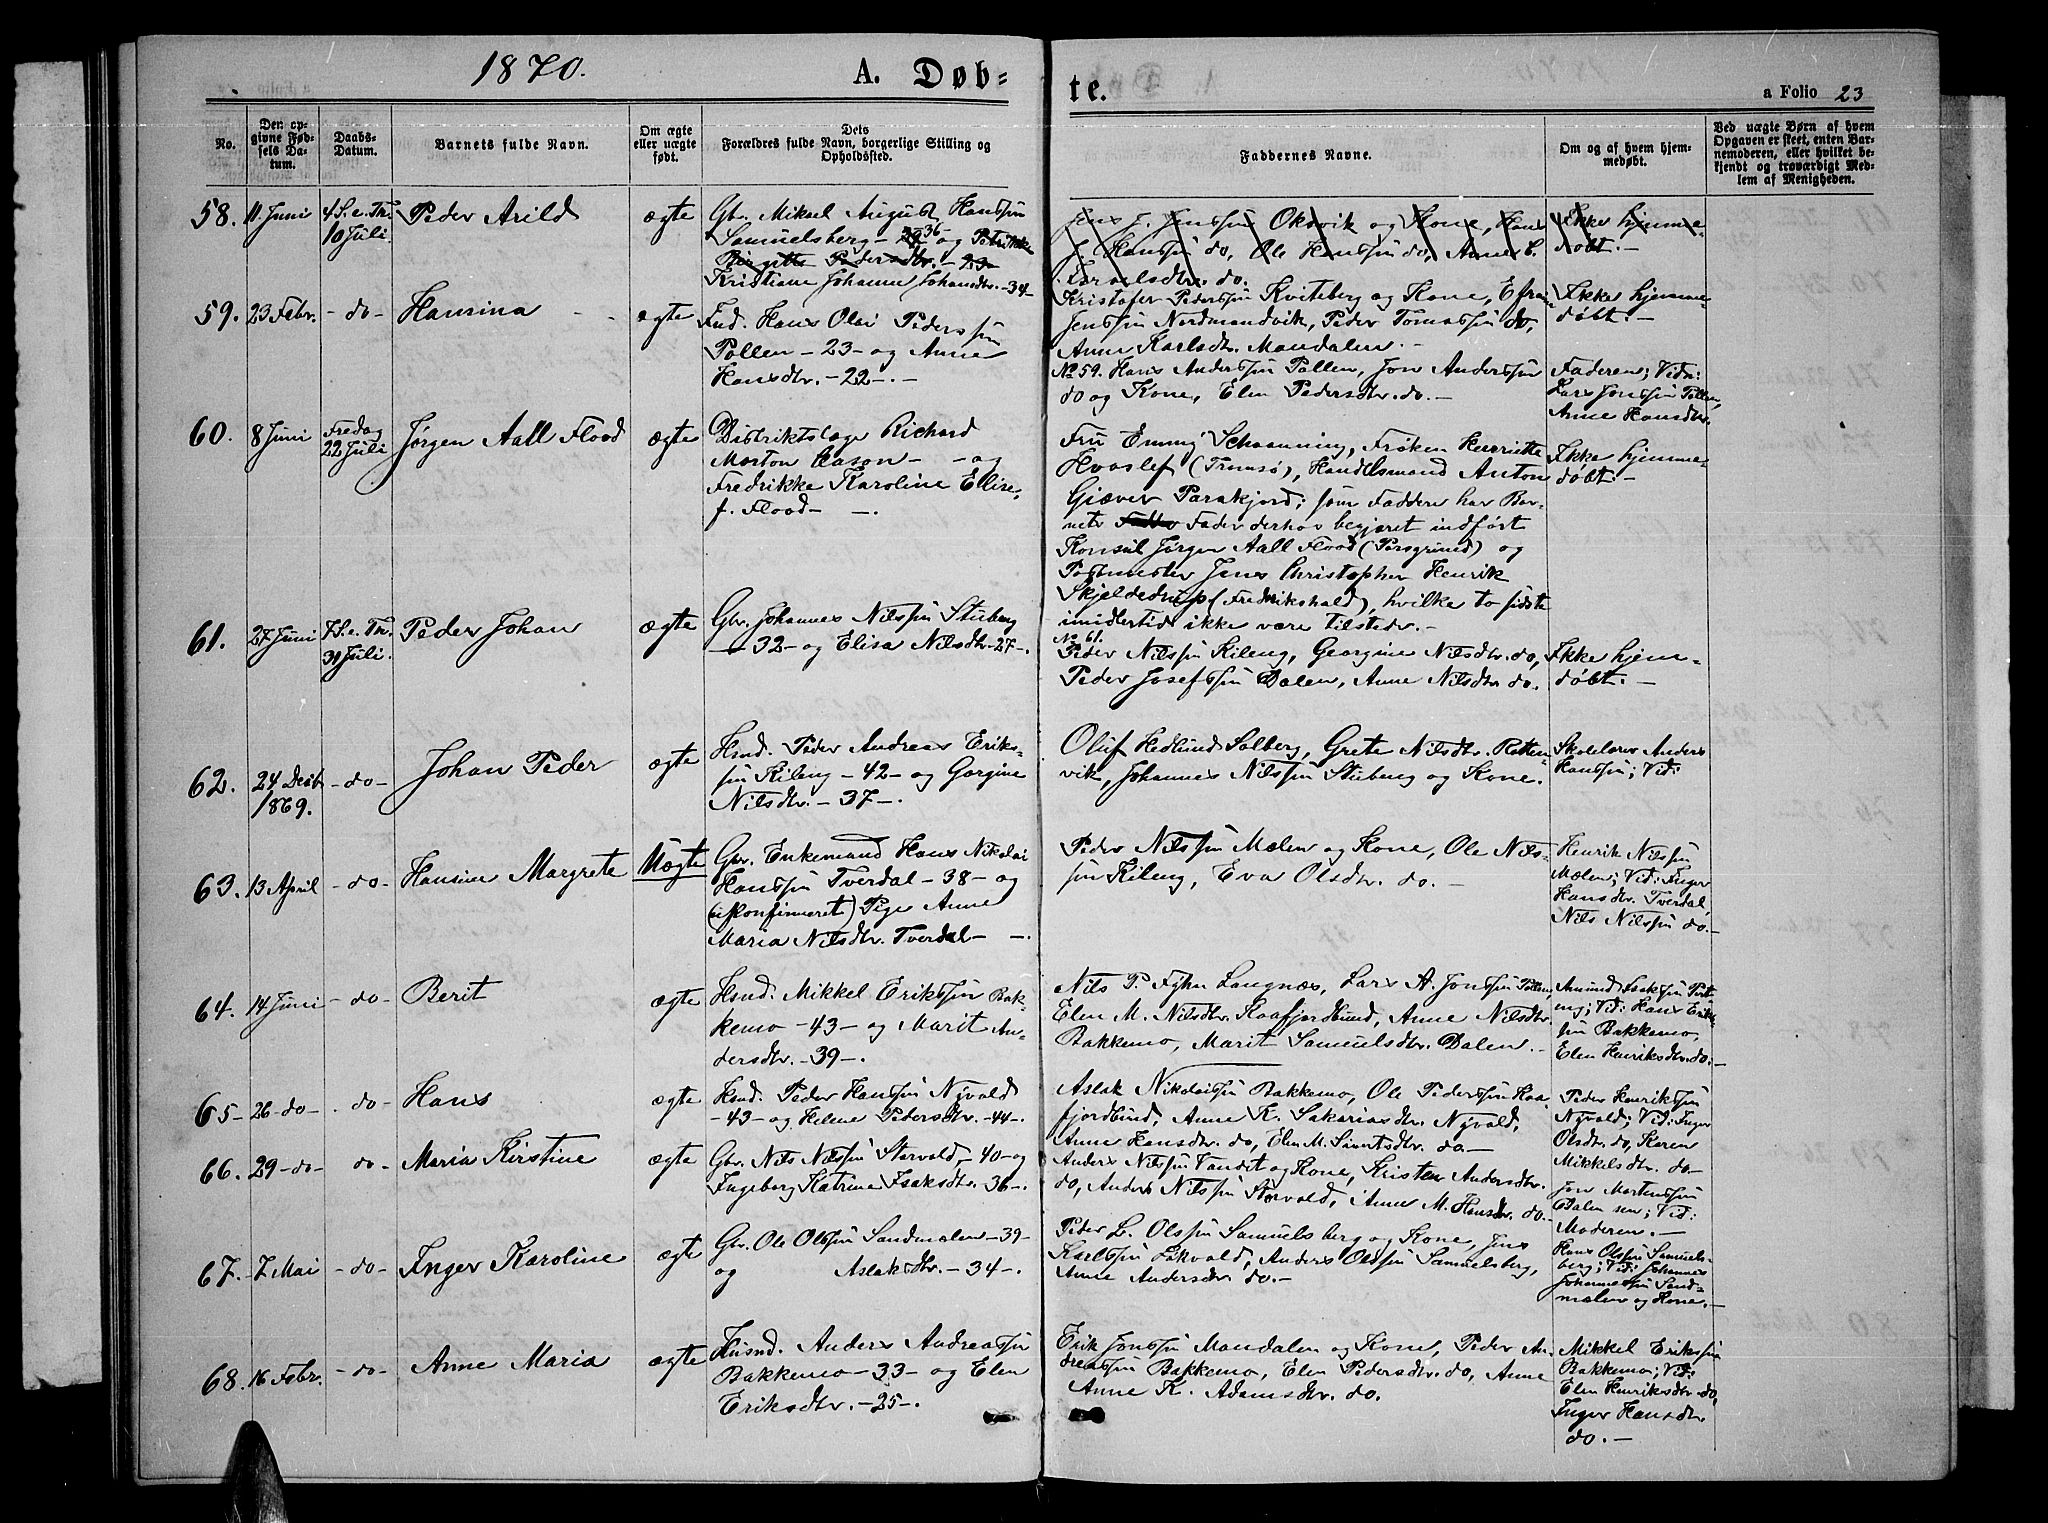 1870.
A. Døb=
te.
a Folio 23
No.
Den op=
givne Fød=
sels Da=
tum.
Daabs=
Datum.
Barnets fulde Navn.
Om ægte
eller uægte
født.
Dets
Forældres fulde Navn, borgerlige Stilling og
Opholdssted.
Faddernes Navne.
Om og af hvem hjem=
medøbt.
Ved uægte Børn af hvem
Opgaven er skeet, enten Bar=
nemoderen, eller hvilket be=
kjendt og troværdigt Med=
lem af Menigheden.
58. 11 Juni 4 S. e. Tr. 10 Juli. Peder Arild ægte
Gbr. Mikael August Hanssøn
Samuelsberg - 36 og Petrikke
Birgitte Pedersdtr. - 23-
Kristiane Johanne Johansdtr. -34-
Jens J. Jenssøn Oksvik og Kone, Hans
J. Hanssøn do, Ole Hanssøn do, Anne C.
Israelsdtr. do.
Kristofer Pederssøn Kviteberg og Kone, Efraim
Jenssøn Nordmandvik, Peder Tomassøn do,
Anne Karlsdtr. Mandalen. -
Ikke hjemme-
døbt. -
Ikke hjemme-
døbt. -
59. 23 Febr. - do - Hansina ægte
Ind. Hans Olai Pederssøn
Pollen - 23 - og Anne
Hansdtr. - 22 -. -
No 59. Hans Anderssøn Pollen, Jon Anderssøn
do og Kone, Elen Pedersdtr. do. -
Faderen; Vidn:
Lars Jonssøn Pollen,
Anne Hansdtr.
60. 8 Juni Fredag 22 Juli Jørgen Aall Flood ægte
Distriktslæge Richard
Morton Eason - - og
Fredrikke Karoline Ellise
f. Flood - -.
Fru Emmy Schaanning, Frøken Henriette
Hvoslef (Tromsø), Handelsmand Anton
Giæver Parakjord; som Faddere har Bar-
nets Fader derhos begjæret indført
Konsul Jørgen Aall Flood (Porsgrund) og
Postmester Jens Christopher Henrik
Skjeldedrup (Fredrikshald), hvilke to sidste
imidlertid ikke være tilstede. -
Ikke hjemme-
døbt. -
61. 27 Juni 7 S. e. Tr. 31 Juli. Peder Johan ægte
Gbr. Johannes Nilssøn Stuberg
- 32 - og Elisa Nilsdtr - 27 -.
No 61.
Peder Nilssøn Kileng, Georgine Nilsdtr. do,
Peder Josefssøn Dalen, Anne Nilsdtr. do.
Ikke hjem-
døbt. -
62. 24 Decbr. 1869. - do - Johan Peder ægte
Hsnd. Peder Andreas Eriks-
søn Kileng - 42 - og Gorgine
Nilsdtr. - 37 -.
Oluf Hedlund Solberg, Grete Nilsdtr. Rotten-
vik, Johannes Nilssøn Stuberg og Kone.
Skolelærer Anders
Hanssøn; Vid:
63. 13 April - do - Hansine Margrete Uægte
Gbr. Enkemand Hans Nikolai
Hanssøn Tverdal - 38 - og
(ukonfirmeret) Pige Anne
Maria Nilsdtr. Tverdal - -.
Peder Nilssøn Mælen og Kone, Ole Nils-
søn Kileng, Eva Olsdtr. do. -
Henrik Nilssøn
Mælen; Vid: Inger
Hansdtr. Tverdal,
Nils Nilssøn do. -
64. 14 Juni - do - Berit ægte
Hsnd. Mikkel Erikssøn Bak-
kemo - 43 - og Marit An-
dersdtr. - 39 -.
Nils P. Fyhn Langnæs, Lars A. Jonssøn Pollen,
Elen M. Nilsdtr. Kaafjordbund, Anne Nilsdtr.
Bakkemo, Marit Samuelsdtr. Dalen. -
Amund Isakssøn
Vid: Hans Eriks-
søn Bakkemo,
Elen Henriksdtr. do. -
65- 26 - do - - do - Hans ægte
Hsnd. Peder Hanssøn Nyvold
- 43 - og Helene Pedersdtr. - 44 -.
Aslak Nikolaissøn Bakkemo, Ole Pederssøn Kaa-
fjordbund, Anne K. Sakariasdtr. Nyvold,
Anne Hansdtr. do, Elen M. Sivertsdtr. do. -
Peder Henrikssøn
Nyvold; Vid: Inger
Olsdtr. do, Karen
Mikkelsdtr. do -
66. 29 - do - do - Maria Kirstine ægte
Gbr. Nils Nilssøn Storvold, - 40 - og
Ingeborg Katrina Isaksdtr. - 36 -.
Anders Nilssøn Vandet og Kone, Kristen Andersdtr.
do, Anders Nilssøn Storvold, Anne M. Hansdtr. do. -
Jon Mortenssøn
Dalen sen; Vid:
Moderen. -
67. 7 Mai - do - Inger Karoline ægte
Gbr. Ole Olssøn Sandmælen - 39 -
og Aslaksdtr. - 34 -.
Peder L. Olssøn Samuelsberg og Kone, Jens
Karlssøn Likvold, Anders Olssøn Samuelsberg,
Anne Andersdtr. do. -
Hans Olssøn Samuels-
berg; Vid: Johannes
Johannessøn Sand-
mælen og Kone. -
68. 16 Febr. - do - Anne Maria ægte
Husnd. Anders Andreassøn
Bakkemo - 33 - og Elen
Eriksdtr. - 25 -.
Erik Jonssøn Mandalen og Kone, Peder An-
dreassøn Bakkemo, Elen Pedersdtr. do, Anne
Anne K. Adamsdtr. do.
Mikkel Erikssøn
Bakkemo; Vid:
Elen Henriksdtr. do,
Inger Hansdtr.
do. -